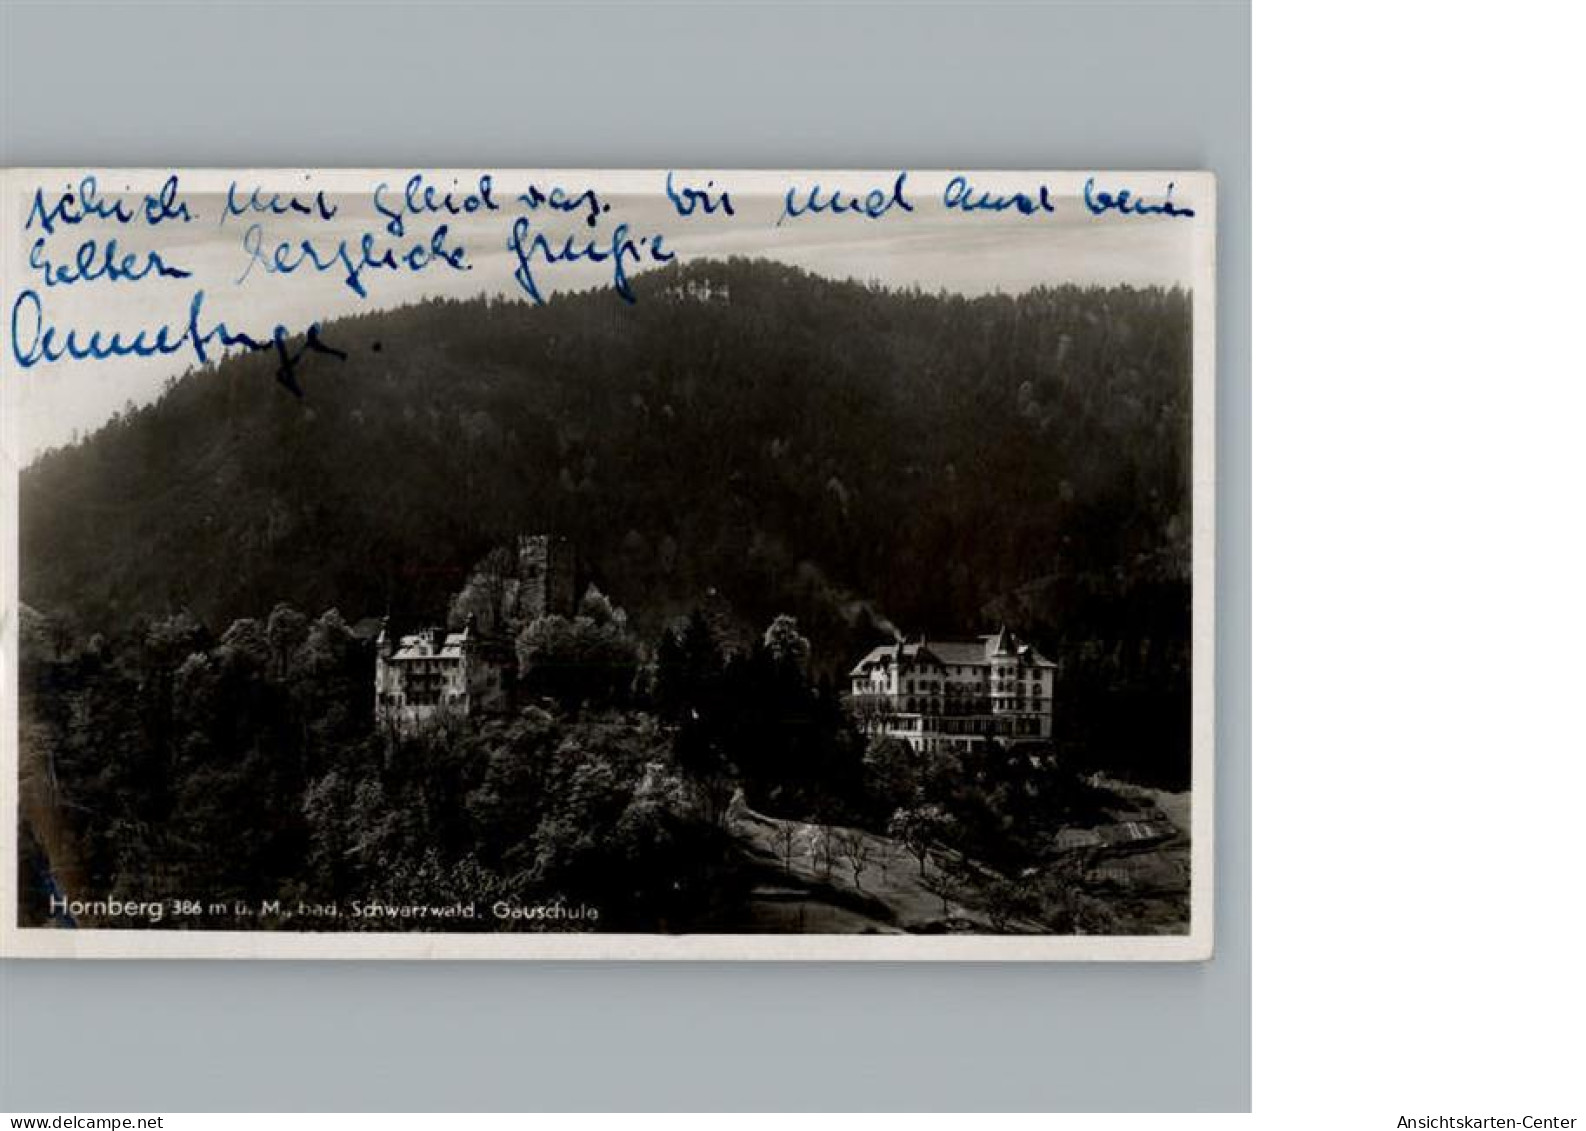 schick mir gleich was. Dir und auch Deinen
Eltern herzliche Grüße
Hornberg 386 m ü. M., bad. Schwarzwald. Gauschule
delcampe.net
Ansichtskarten-Center